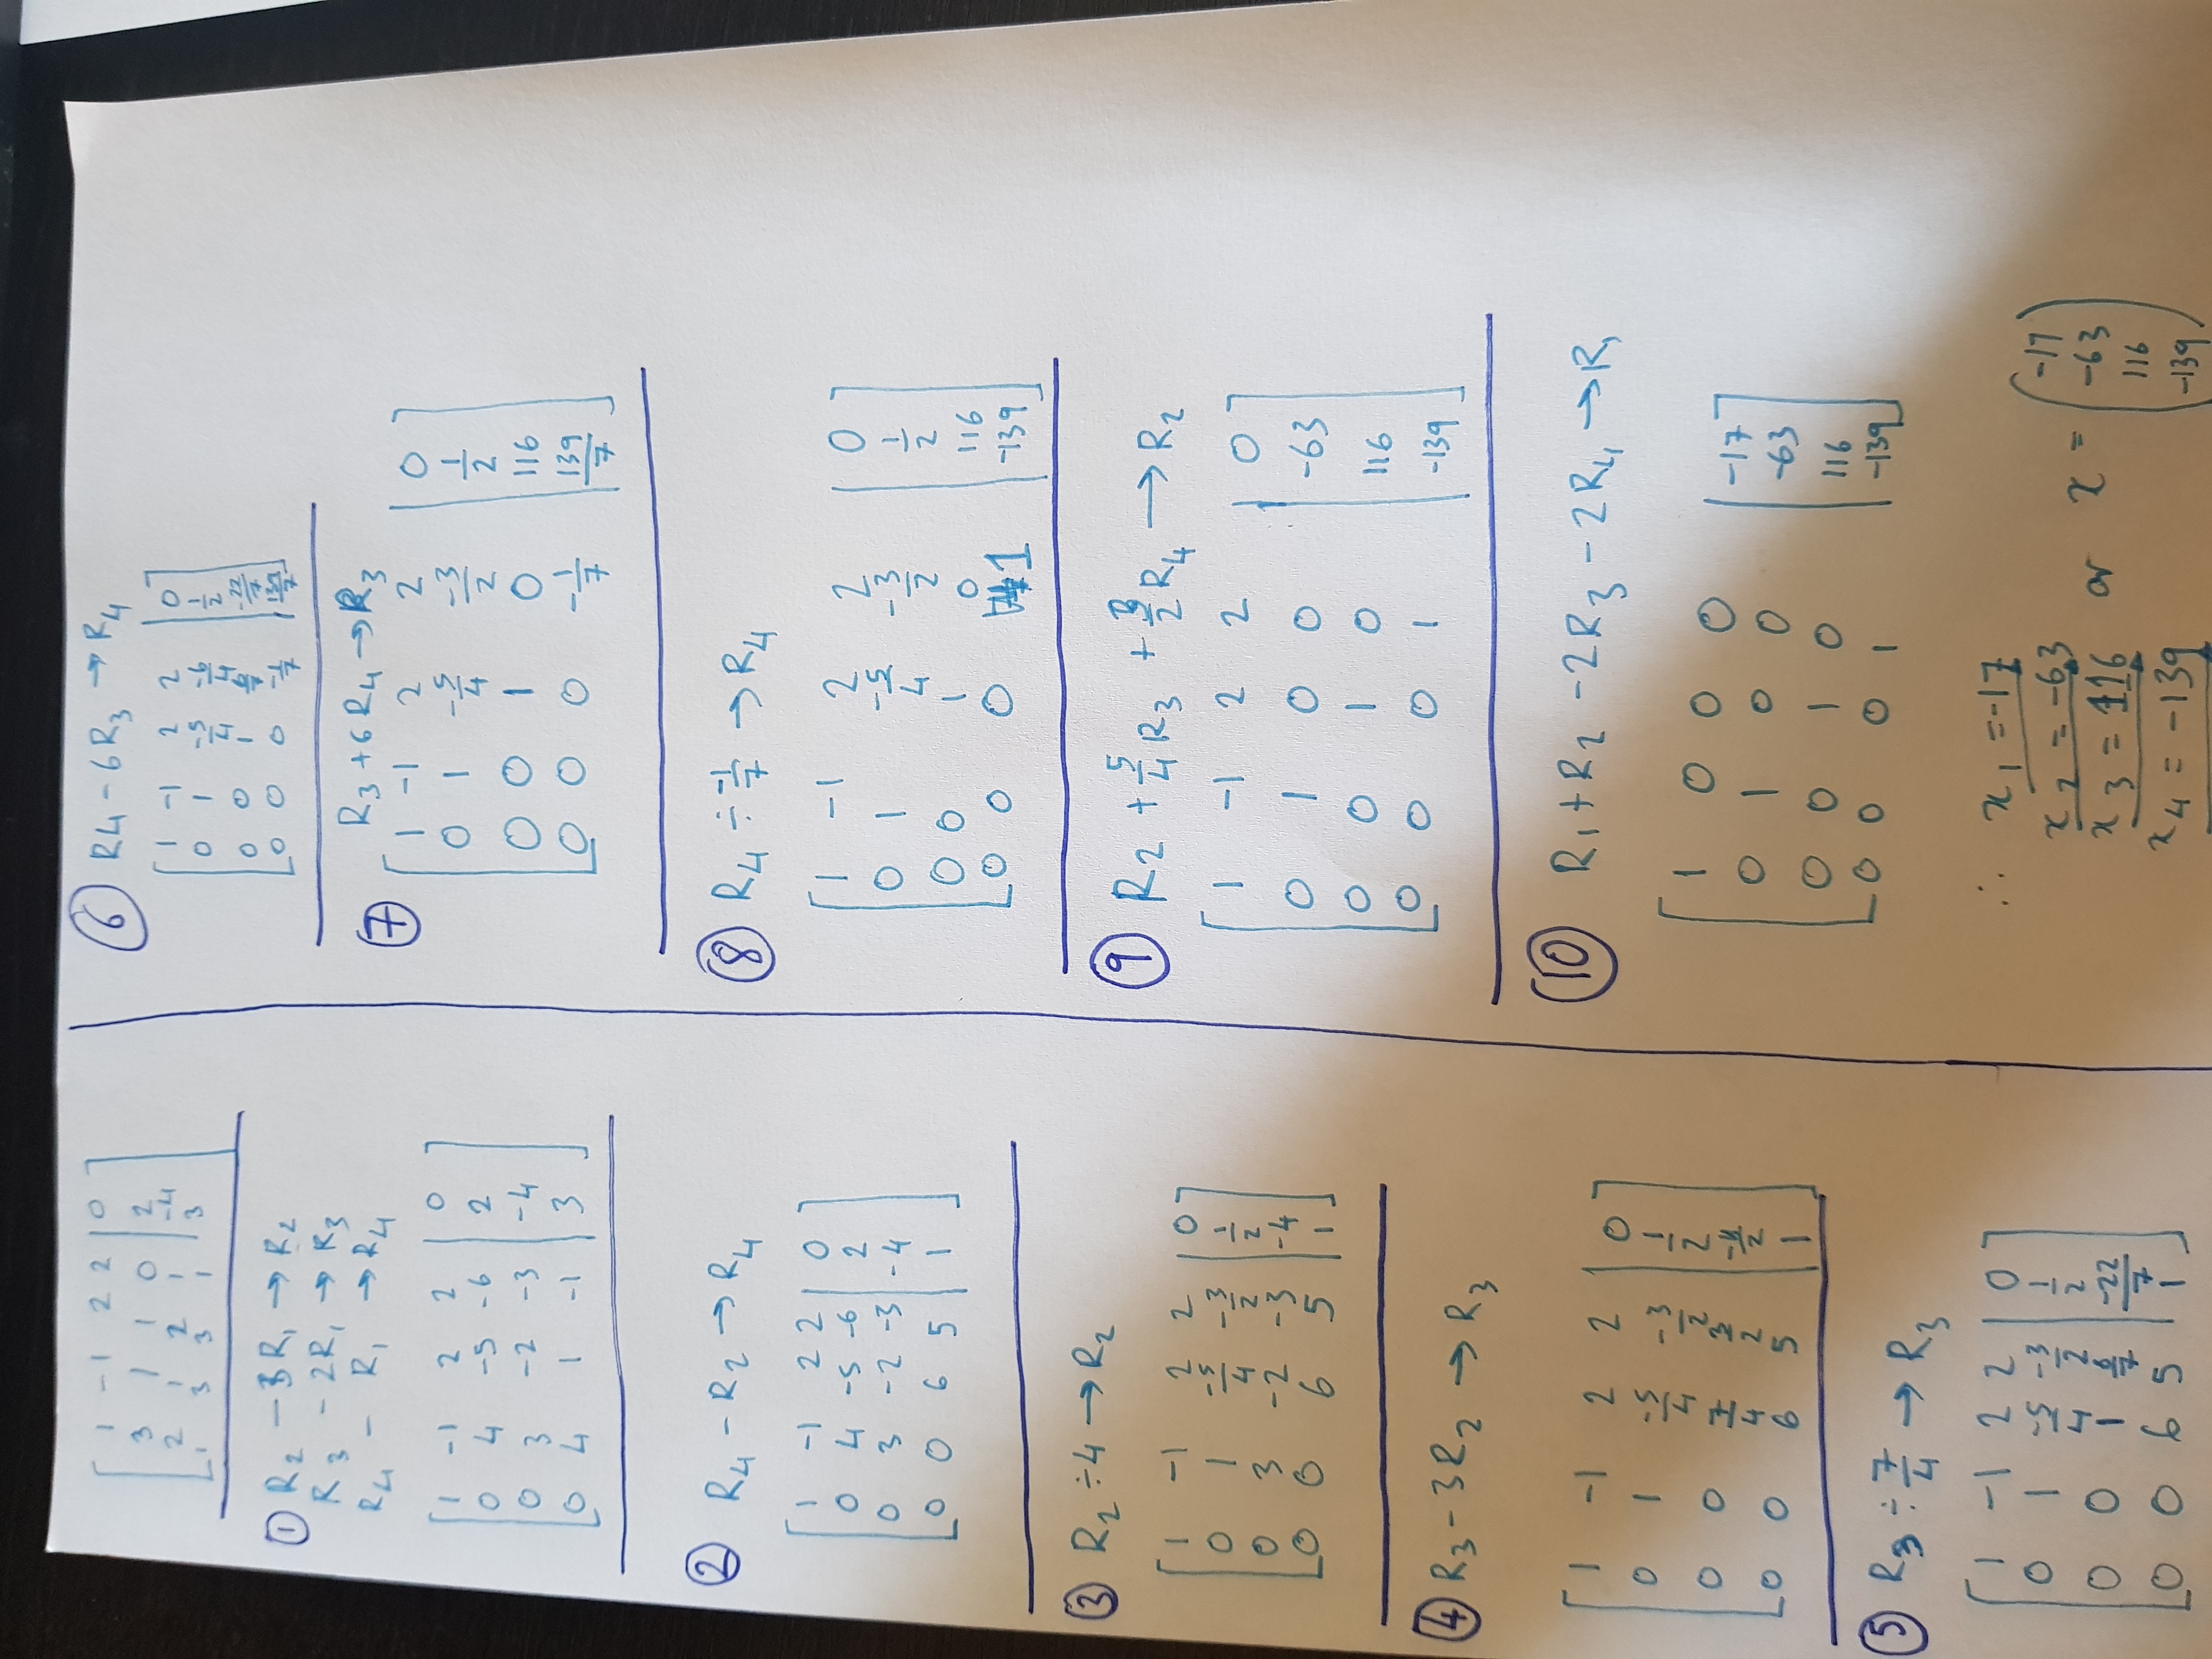 1 -1 2 2 | 0
3 1 1 0 | 2
2 1 2 1 | -4
1 3 3 1 | 3
① R₂ - 3R₁ → R₂
R₃ - 2R₁ → R₃
R₄ - R₁ → R₄
1 -1 2 2 | 0
0 4 -5 -6 | 2
0 3 -2 -3 | -4
0 4 1 -1 | 3
② R₄ - R₂ → R₄
1 -1 2 2 | 0
0 4 -5 -6 | 2
0 3 -2 -3 | -4
0 0 6 5 | 1
③ R₂ ÷ 4 → R₂
1 -1 2 2 | 0
0 1 -5/4 -3/2 | 1/2
0 3 -2 -3 | -4
0 0 6 5 | 1
④ R₃ - 3R₂ → R₃
1 -1 2 2 | 0
0 1 -5/4 -3/2 | 1/2
0 0 7/4 3/2 | /2
0 0 6 5 | 1
⑤ R₃ ÷ 7/4 → R₃
1 -1 2 2 | 0
0 1 -5/4 -3/2 | 1/2
0 0 1 6/7 | -22/7
0 0 6 5 | 1
⑥ R4 - 6R₃ → R₄
1 -1 2 2 | 0
0 1 -5/4 -6/4 | 1/2
0 0 1 6/7 | -22/7
0 0 0 -1/7 | 139/7
⑦ R₃ + 6R₄ → R₃
1 -1 2 2 | 0
0 1 -5/4 -3/2 | 1/2
0 0 1 0 | 116
0 0 0 -1/7 | 139/7
⑧ R₄ ÷ -1/7 → R₄
1 -1 2 2 | 0
0 1 -5/4 -3/2 | 1/2
0 0 1 0 | 116
0 0 0 1 | -139
⑨ R₂ + 5/4 R₃ + 3/2 R₄ → R₂
1 -1 2 2 | 0
0 1 0 0 | -63
0 0 1 0 | 116
0 0 0 1 | -139
⑩ R₁ + R₂ - 2R₃ - 2R₄ → R₁
1 0 0 0 | -17
0 1 0 0 | -63
0 0 1 0 | 116
0 0 0 1 | -139
∴ x₁ = -17
x₂ = -63
x₃ = 116
x₄ = -139
or x = (-17
-63
116
-139)